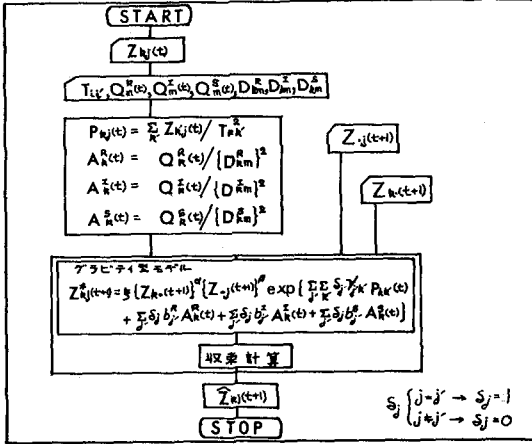 START
Zkj(t)
Tij', Q^R_m(t), Q^I_m(t), Q^S_m(t), D^R_km, D^I_km, D^S_km
Pkj(t) = Σ_k' Zk'j(t) / T²kk'
A^R_k(t) = Q^R_k(t) / {D^R_km}²
A^I_k(t) = Q^I_k(t) / {D^I_km}²
A^S_k(t) = Q^S_k(t) / {D^S_km}²
Z.j(t+1)
Zk.(t+1)
グラビティ型モデル
Z*kj(t+1) = ξ {Zk.(t+1)}^α {Z.j(t+1)}^β exp{ Σ_j' Σ_k' δj γj'k' Pkk'(t)
+ Σ_j' δj b^R_j' A^R_k(t) + Σ_j' δj b^I_j' A^I_k(t) + Σ_j' δj b^S_j' A^S_k(t) }
収束計算
Ẑkj(t+1)
STOP
δj { j=j' → δj=1
j≠j' → δj=0